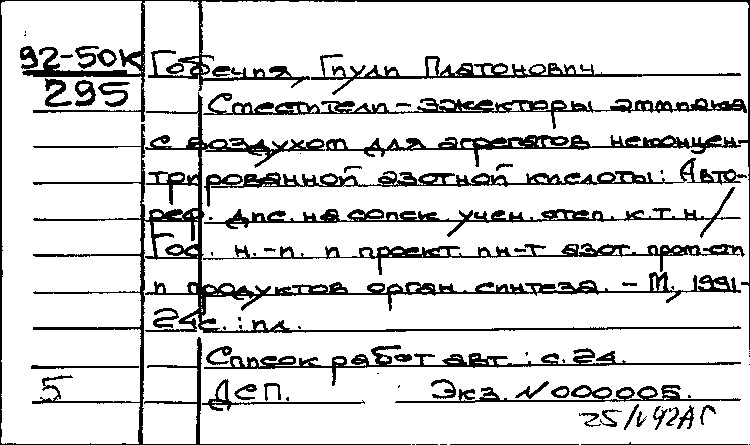 92-50К
295
Гобечия, Гиули Платонович
Смесители-эжекторы аммиака
с воздухом для агрегатов неконцен-
трированной азотной кислоты: Авто-
реф. дис. на соиск. учен. степ. к.т.н. /
Гос. н.-и. и проект. ин-т азот. пром-сти
и продуктов орган. синтеза. - М., 1991-
24с. : ил.
Список работ авт.: с.24.
5 ДСП. Экз. N000005.
25/V 92АГ